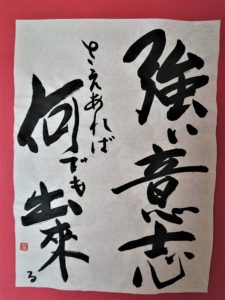 強い意志
さえあれば
何でも出来
る